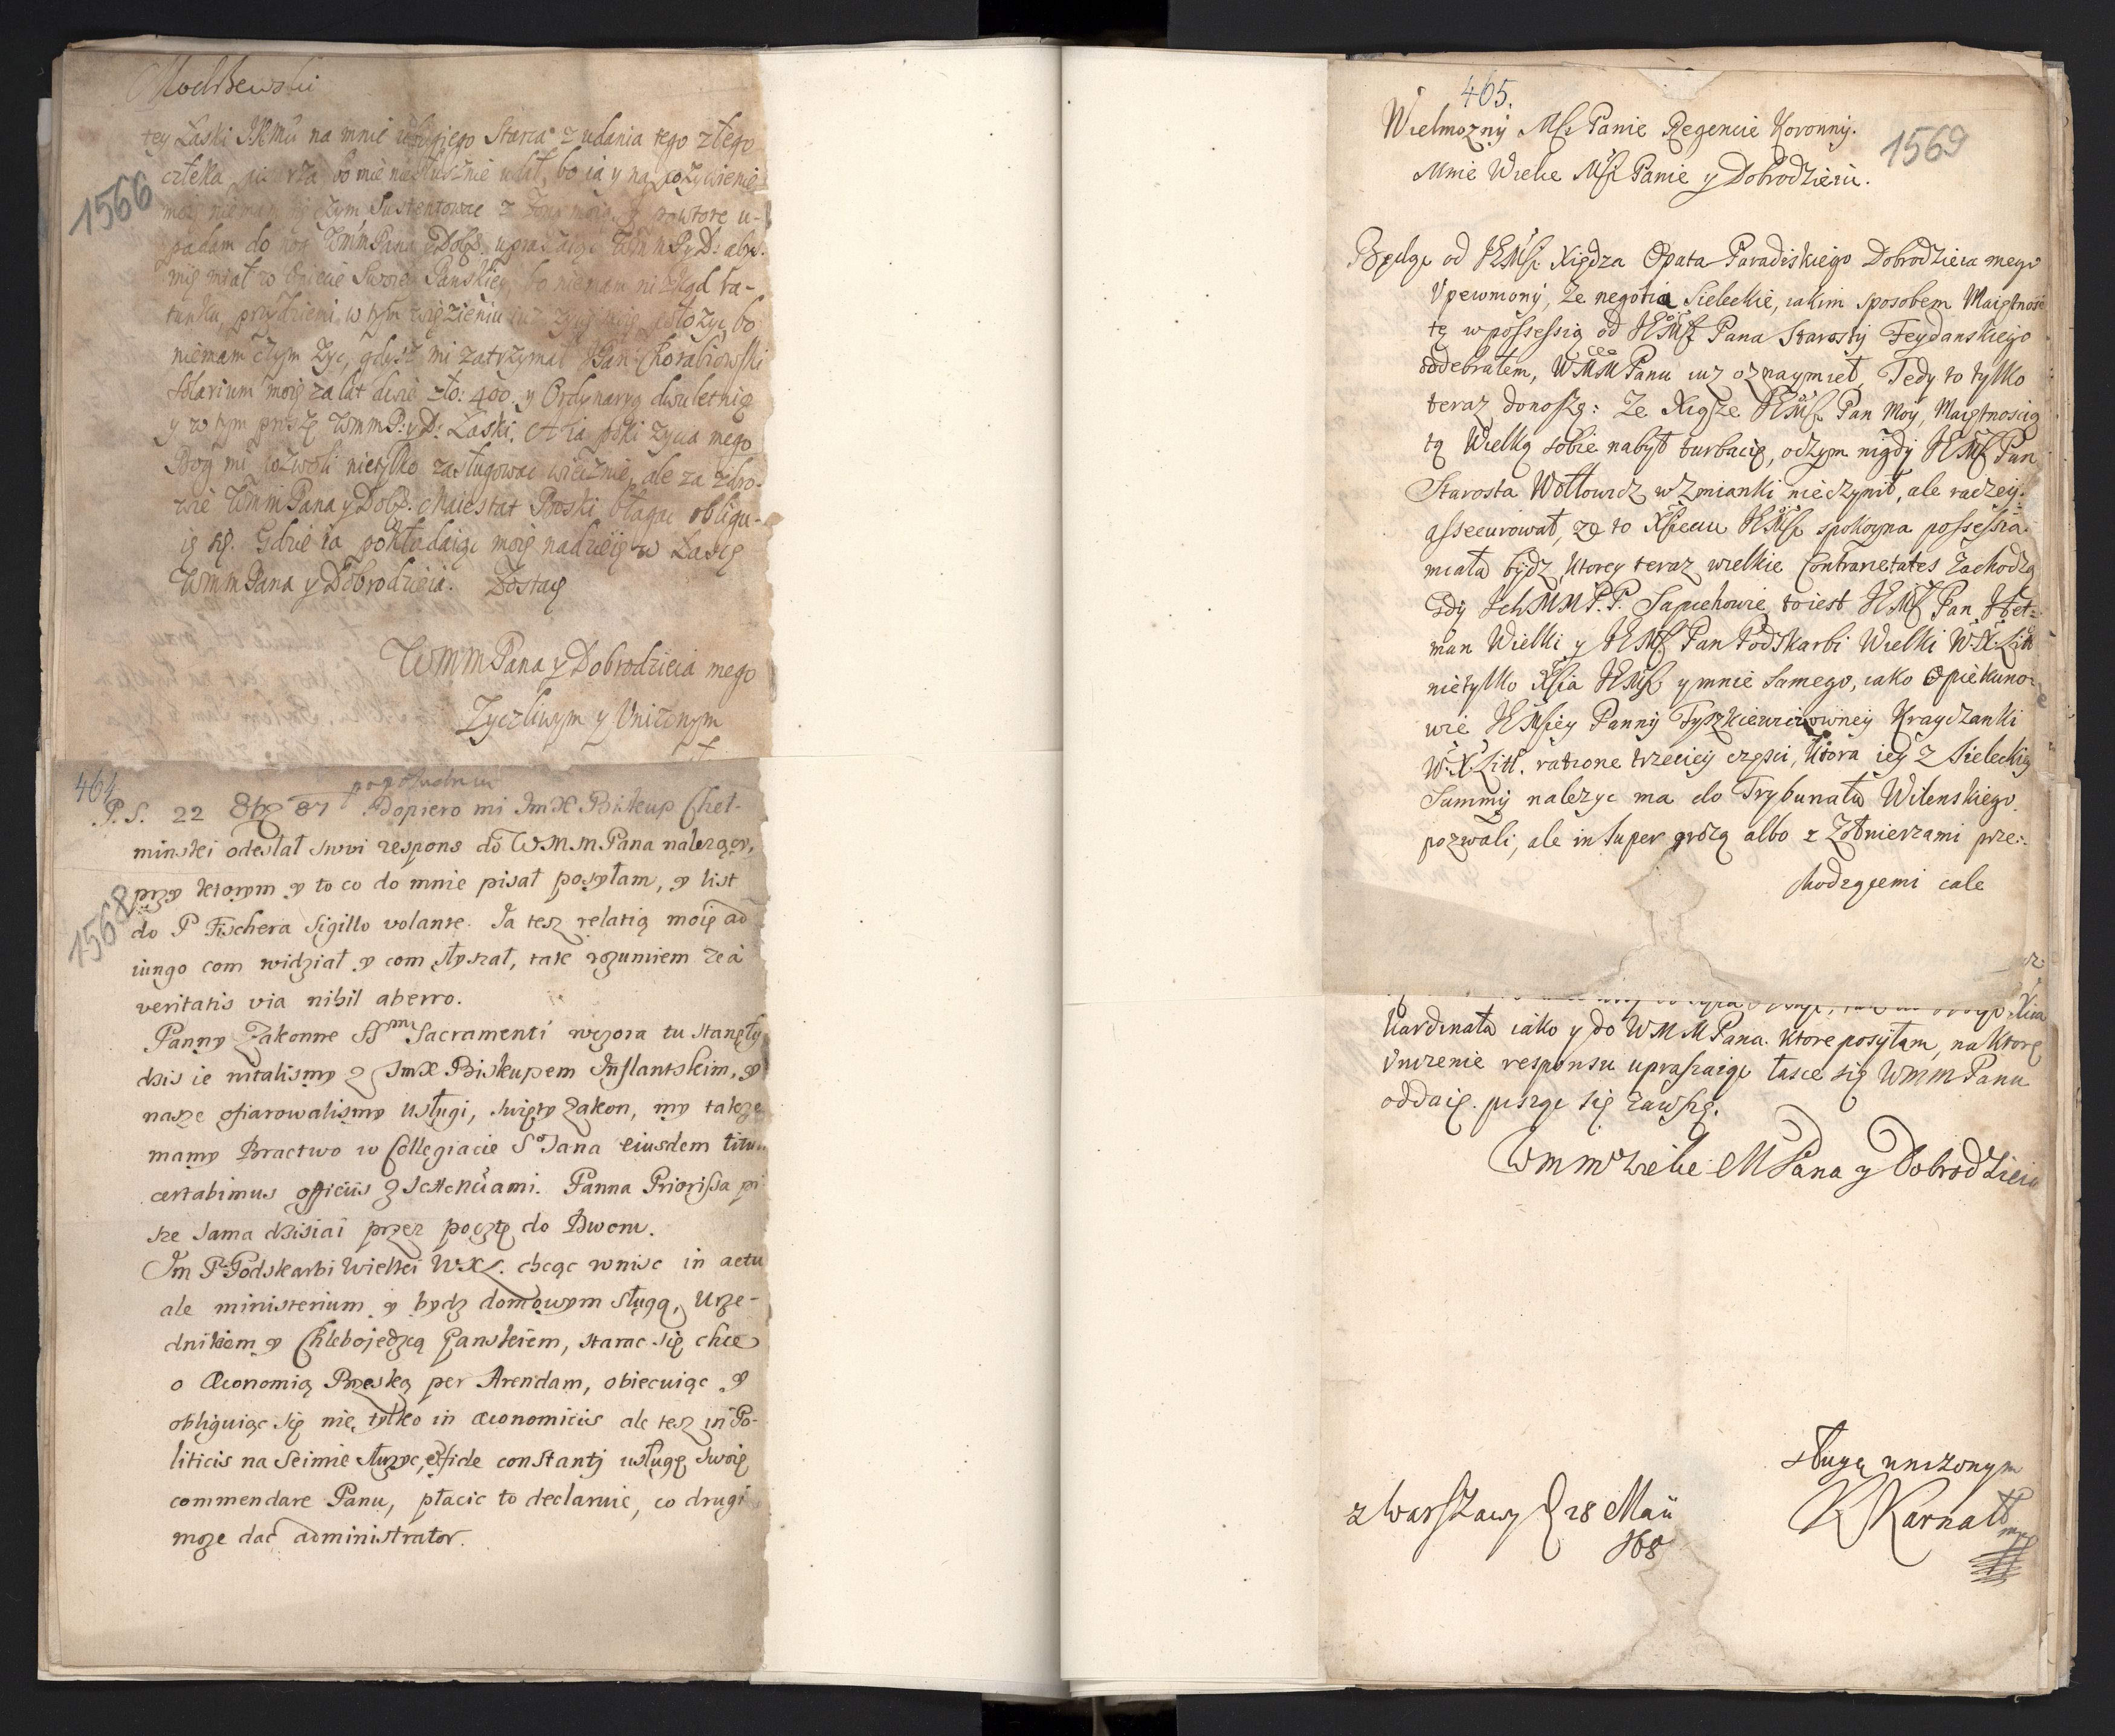 Modlszewski
tey Łaski JKMći na mnie ubogiego Starca z udania tego złego
człeka, bo mie niesłusznie udał, bo ia y na pozywienie
1566
moie niemam czym Sustentowac z Zoną moią. powtore u-
padam do nog WmmPana y Dobr. upraszaiąc WmmP y D: aby
mię miał w Opiece Swoiey Panskiey, bo niemam nizkąd ra-
tunku, przydziemi w tym więzieniu iuz zywot moy położyc, bo
niemam czym Zyc, gdysz mi zatrzymał JPan Chorabiowski
Solarium moie za lat dwie zło: 400. y Ordynaryą dwuletnię
y w tym proszę WmmP: y D: Łaski. A ia poki zycia mego
Bog mi pozwoli nietylko zasługowac wiecznie, ale za zdro-
wie WmmPana y Dobr. Maiestat Boski błagac obligu-
ię się. Gdzie ia pokładaiąc moię nadzieię w Łasce
WmmPana y Dobrodzieia. Zostaię
WMMPana y Dobrodzieia mego
Zyczliwym y Unizonym
464
popołudniu
P.S. 22 8br 87 Dopiero mi JmX Biskup Cheł-
minski odesłał swoi respons do WMMPana nalezący,
przy ktorym y to co do mnie pisał posyłam, y list
1568
do P Fischera Sigillo volante. Ja tesz relatią moię ad
iungo com widział y com słyszał, tak rozumiem ze a
veritatis via nihil aberro.
Panny Zakonne SSmi Sacramenti wczora tu stanęły
dzis ie witalismy z JmX Biskupem Inflantskim, y
nasze ofiarowalismy usługi, swięty Zakon, my takze
mamy Bractwo w Collegiacie So Jana eiusdem titu..
certabimus officiis z Jettenciami. Panna Priorissa pi
sze sama dzisiai przez pocztę do Dworu.
Jm P. Podskarbi Wielki WXL. chcąc wnisc in actu
ale ministerium y bydz domowym sługą, Urze-
dnikiem y Chlebojedzcą Panskiem, starac się chce
o Œconomią Brzeską per Arendam, obiecuiąc y
obliguiąc się nie tylko in œconomicis ale tesz in Po-
liticis na Seimie słuzyc, et fide constanti usługę swoię
commendare Panu, płacic to declaruie, co drugi
moze dać administrator.
465.
1569
Wielmozny Msc Panie Regencie Koronny.
Mnie Wielce Msc Panie y Dobrodzieiu.
Będąc od JEMsc Xiędza Opata Paradiskiego Dobrodzieia mego
Upewniony, Ze negotia Sieleckie, iakim sposobem Maiętnosc
tę w possessią od JEMsc Pana Starosty Feydanskiego
oddebrałem, WMMPanu iuz oznaymieł, Tedy to tylko
teraz donoszę: Ze Xiąze JEMsc Pan Moy, Maiętnoscią
tą Wielką sobie nabył turbacię, oczym nigdy JEMsc Pan
Starosta Wołłowicz wzmianki nieczynił, ale raczey
assecurował, ze to Xsięciu JEMsc spokoyna possessia
miała bydz, ktorey teraz wielkie Contrarietates Zachodzą
Gdy Ich MM P.P. Sapiehowie, to iest JEMsc Pan Het=
man Wielki y JEMsc Pan Podskarbi Wielki W.X.Litt
nietylko Xsia JEMsc y mnie samego, iako Opiekuno-
wie JEMsciey Panny Tyszkiewiczowney Krayczanki
W.X.Litt. ratione trzeciey częsci, ktora iey z Sieleckiey
Summy nalezyc ma do Trybunału Wilenskiego
pozwali, ale in super grozą albo z Zołnierzami prze:
chodzącemi cale
Kardinała iako y do WMMPana. Ktore posyłam, na Ktore
Unizenie responsu upraszaiąc łasce się WMMPanu
oddaię. pisząc się zawsze.
Wmm wielce MPana y Dobrodzieia
sługą unizonym
K Karnałł mp
z Warszawy d 28 Maii
168